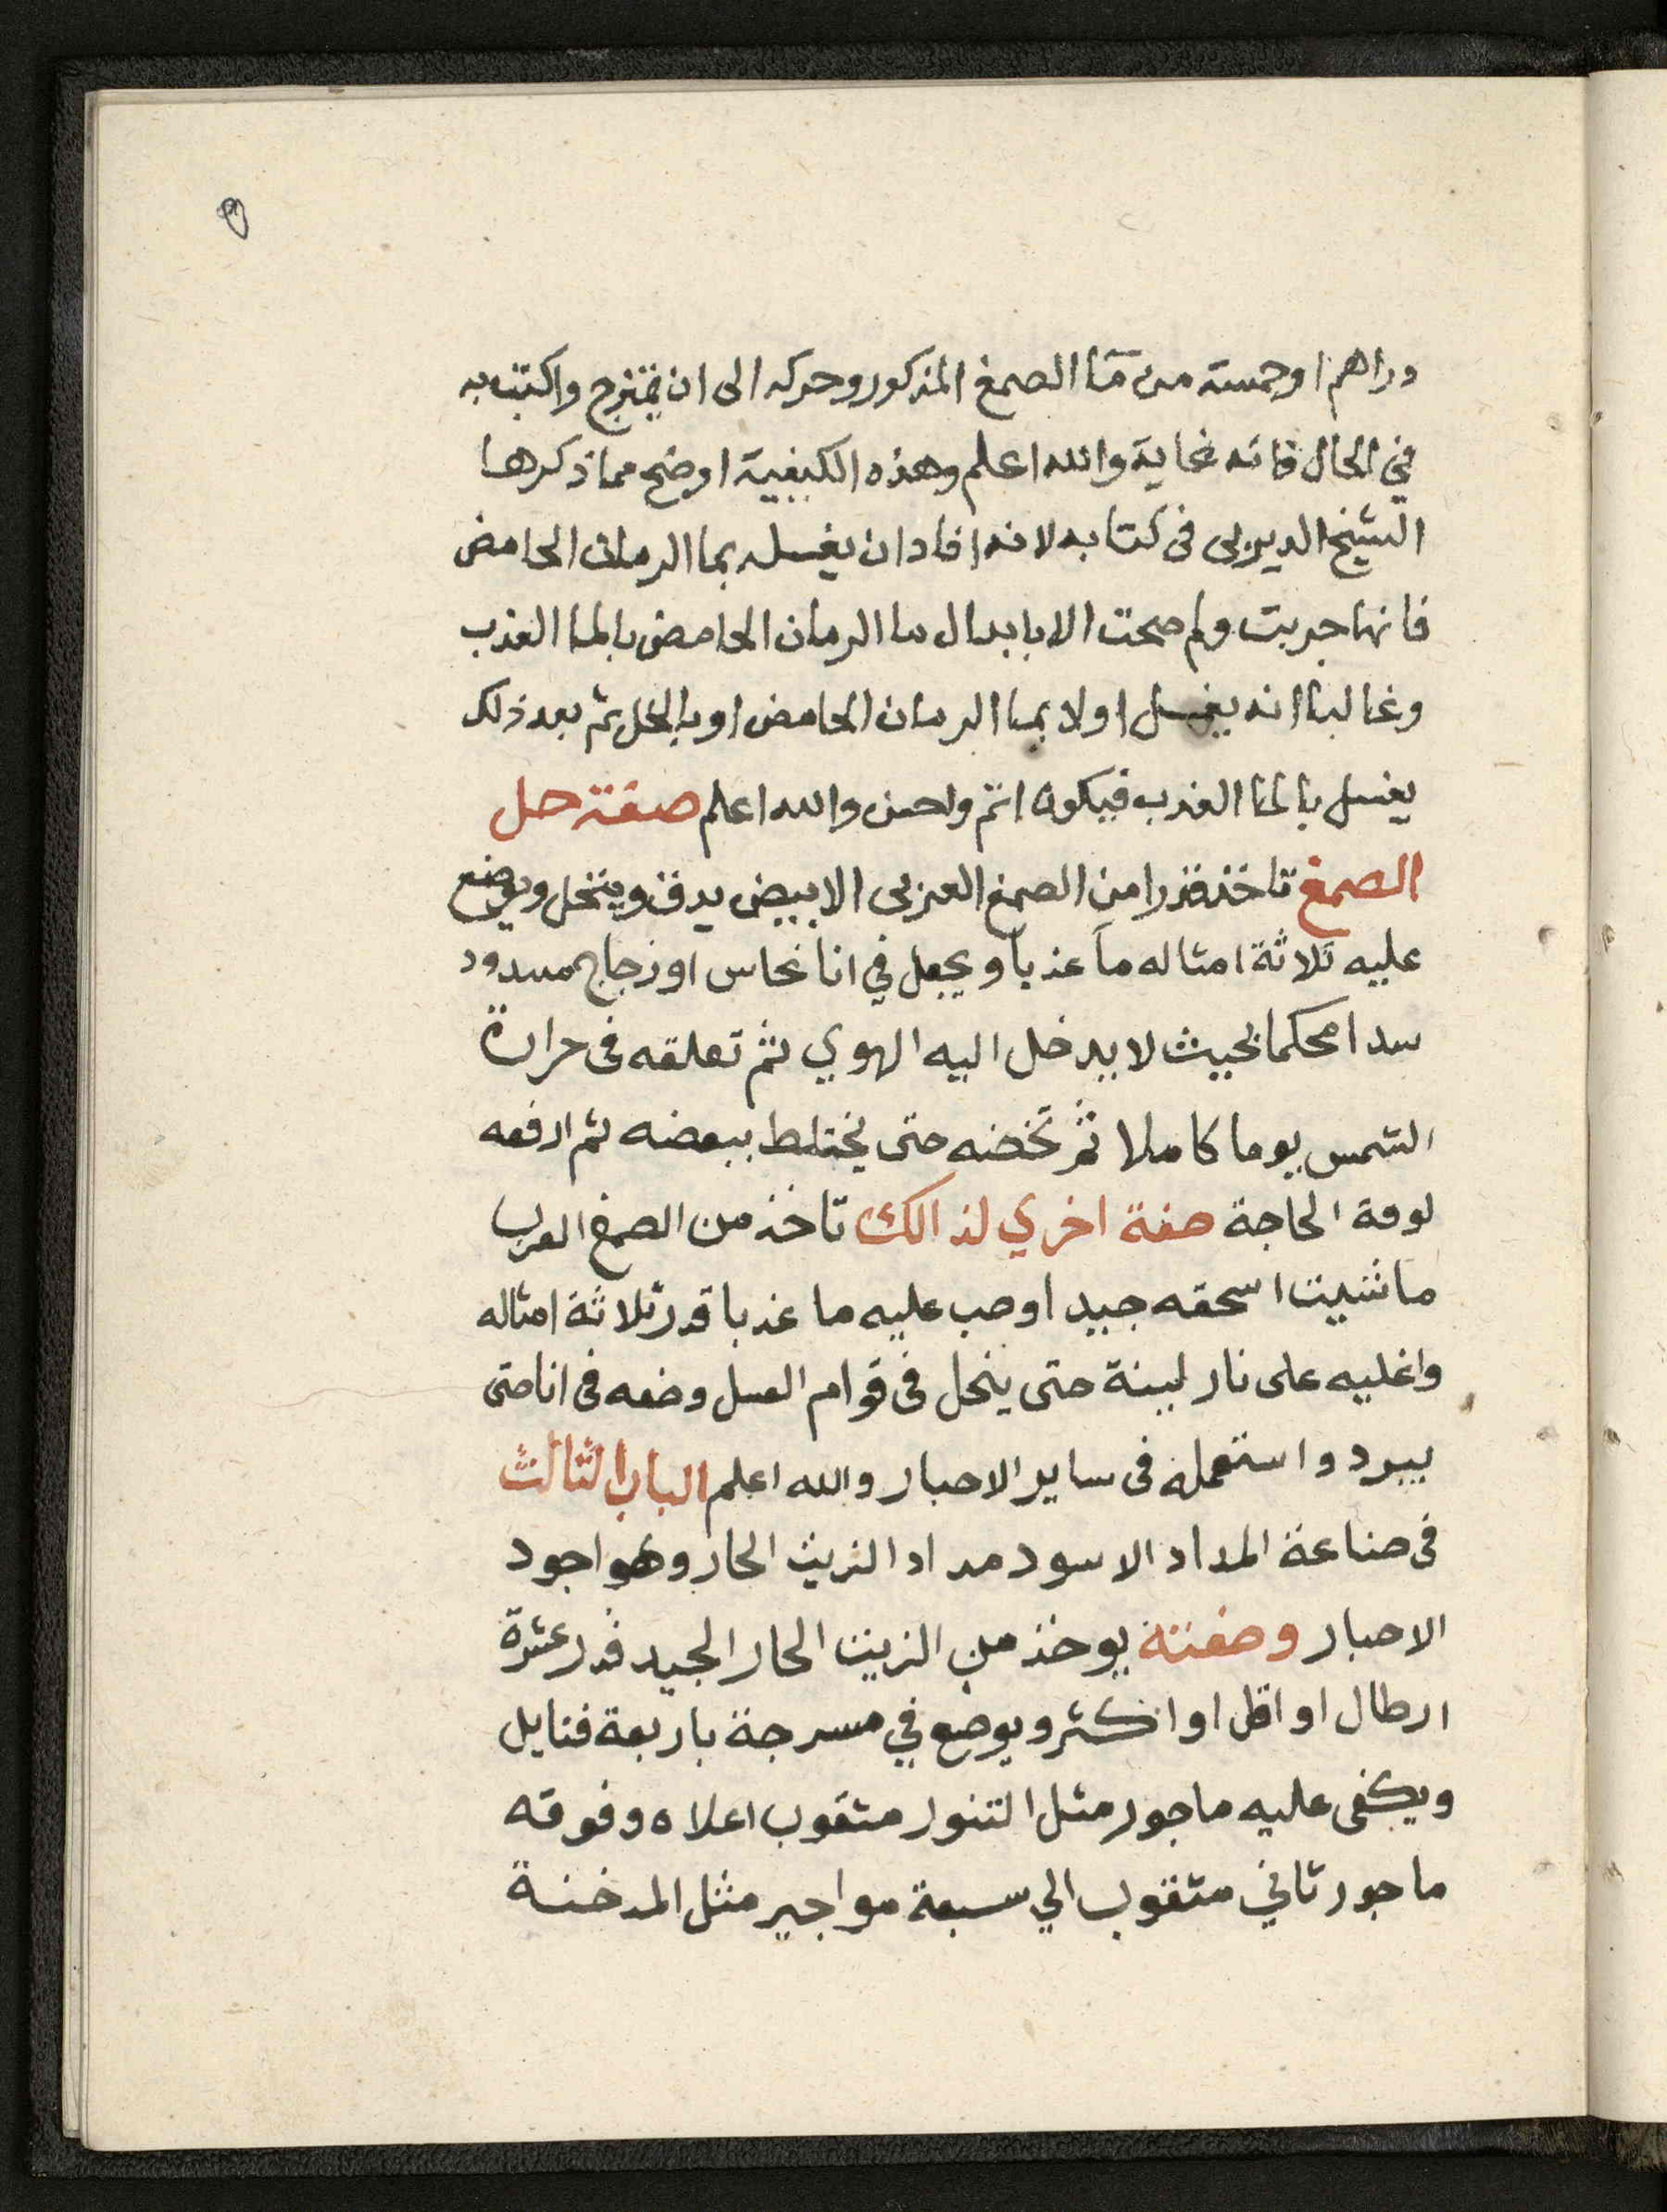 ٥
دراهم او خمسة من ماء الصمغ المذكور وحركه الى ان يمتزج واكتب به
في الحال فانه غاية والله اعلم وهذه الكيفية اوضح مما ذكرها
الشيخ الديربى فى كتابه لانه افاد ان يغسله بما الرمان الحامض
فانها جربت ولم صحت الا بابدال ما الرمان الحامض بالما العذب
وغالبا انه يغسل اولا بما الرمان الحامض او بالخل ثم بعد ذلك
يغسل بالما العذب فيكون اتم واحسن والله اعلم صفة حل
الصمغ تاخذ قدرا من الصمغ العربى الابيض يدق وينخل ويوضع
عليه ثلاثة امثاله ماَ عذبا ويجعل في انا نحاس او زجاج مسدود
سدا محكما بحيث لا يدخل اليه الهوي ثم تعلقه فى حرارة
الشمس يوما كاملا ثم تخضه حتى يختلط ببعضه ثم ارفعه
لوقة الحاجة صفة اخري لذالك تاخذ من الصمغ العربى
ما شيت اسحقه جيدا وصب عليه ما عذبا قدر ثلاثة امثاله
واغليه على نار لينة حتى ينحل فى قوام العسل وضعه فى انا حتى
يبرد واستعمله فى ساير الاحبار والله اعلم الباب الثالث
فى صناعة المداد الاسود مداد الزيت الحار وهو اجود
الاحبار وصفته يوخذ من الزيت الحار الجيد قدر عشرة
ارطال او اقل او اكثر ويوضع في مسرجة باربعة فتايل
ويكفى عليه ماجور مثل التنور مثقوب اعلاه وفوقه
ماجور ثاني مثقوب الي سبعة مواجير مثل المدخنة